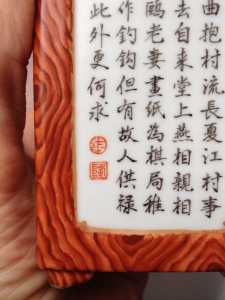 曲抱村流長夏江村事
去自来堂上燕相親相
鷗老妻畫紙為棋局稚
作釣鈎但有故人供禄
此外更何求